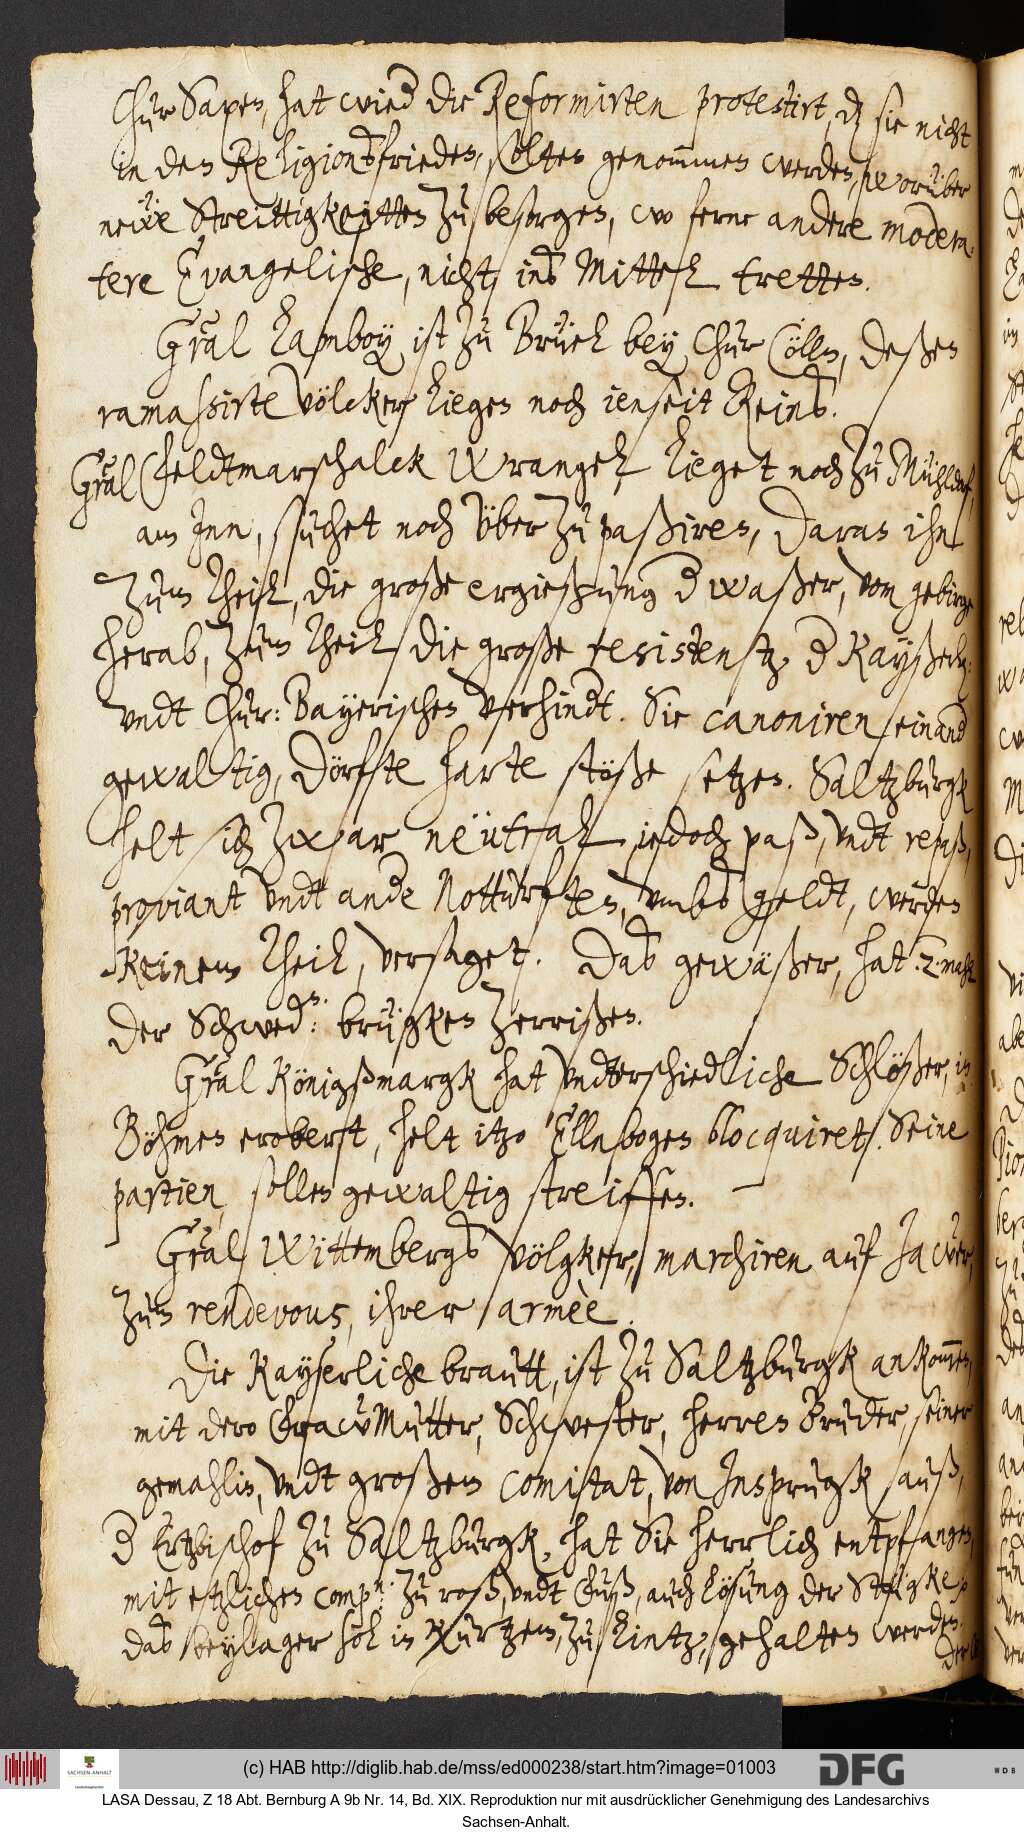 Chur Saxen, hat wied die Reformirten protestirt, dz sie nicht
in den Religionsfrieden, solten genommen werden, worüber
neẅe Streittigkeitten zu besorgen, wo ferne andere modera-
tere Evangelische, nicht, ins Mittel tretten.
Gral Lamboy ist zu Brüel bey Chur Cölln, deßen
ramassirte völcker liegen noch ienseit Reins.
Gral Feldtmarschalck Wrangel, lieget noch zu Mühldorf,
am Inn, suchet noch über zu paßiren, daran ihn
zum theil, die große ergießung d waßer, vom gebirge
herab, zum theil die große resistentz, d Kayßerl:
undt Chur: Bayerischen verhindt. Sie canoniren einand
gewaltig, dörfte harte stöße setzen. Saltzburgk
helt sich zwar neütral, iedoch paß, undt repaß,
proviant undt ande Notturften, umbs geldt, werden
keinem theil, versaget. Das gewäßer, hat .2. mahl
der Schwed:en brügken zerrißen.
Gral Königßmargk hat undterschiedliche Schlößer, in
Böhmen erobert, helt itzo Ellnbogen blocquiret. Seine
partien, sollen gewaltig streiffen.
Gral Wittembergs völgker, marchiren auf Jawer,
zum rendevous, ihrer armèe.
Die Kayserliche brautt, ist zu Saltzburgk ankommen,
mit dero Fraw Mutter, Schwester, herren Bruder, seiner
gemahlin, undt großem comitat, von Insprugk auß,
d Ertzbischof zu Saltzburgk, hat Sie herrlich entpfangen,
mit etzlichen comp.n: zu roß, undt Fuß, auch lösung der Stügke,
das beylager sol in Kurtzem, zu Lintz, gehalten werden.
Der
(c) HAB http://diglib.hab.de/mss/ed000238/start.htm?image=01003
SACHSEN-ANHALT
DFG
WDB
LASA Dessau, Z 18 Abt. Bernburg A 9b Nr. 14, Bd. XIX. Reproduktion nur mit ausdrücklicher Genehmigung des Landesarchivs
Sachsen-Anhalt.